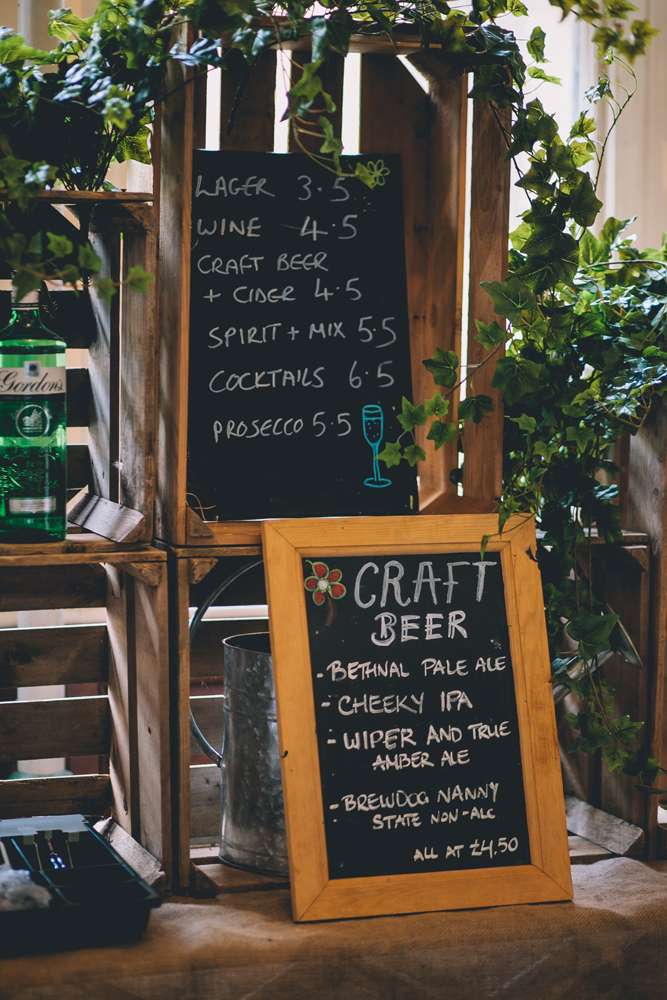 LAGER 3.5
WINE 4.5
CRAFT BEER
+ CIDER 4.5
SPIRIT + MIX 5.5
COCKTAILS 6.5
PROSECCO 5.5
Gordon's
CRAFT
BEER
- BETHNAL PALE ALE
- CHEEKY IPA
- WIPER AND TRUE
AMBER ALE
- BREWDOG NANNY
STATE NON-ALC
ALL AT £4.50